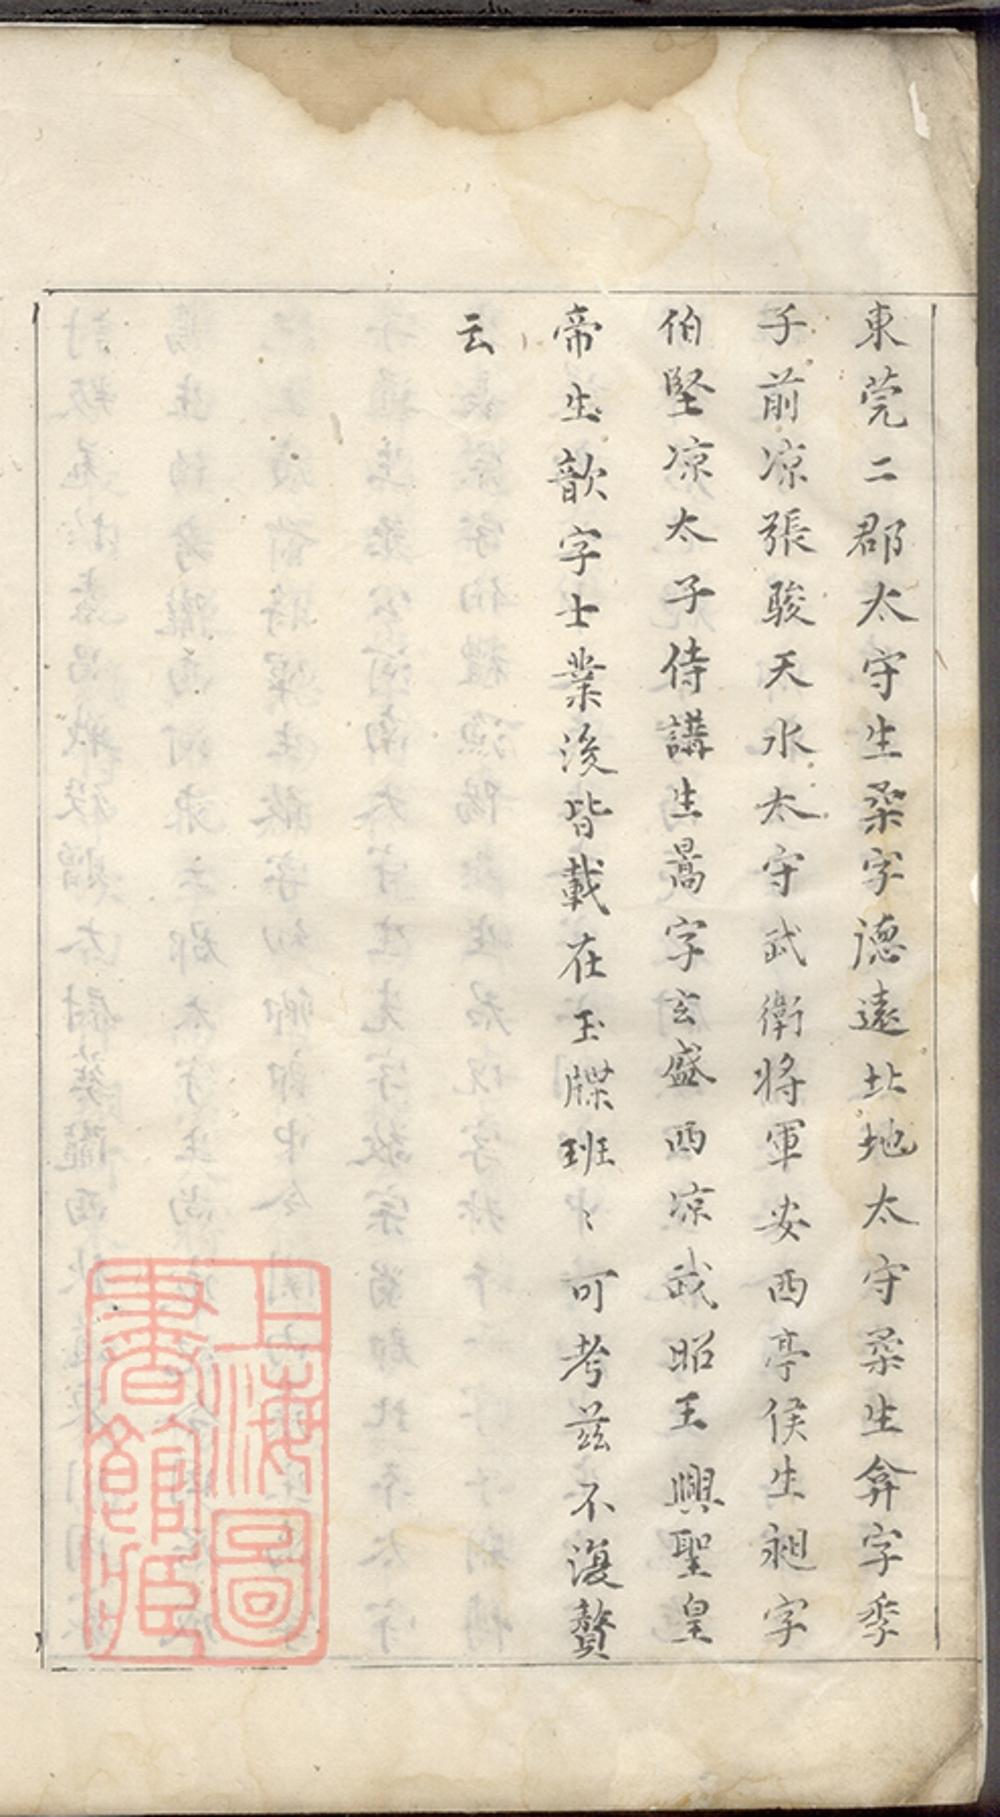 東莞二郡太守生柔字德遠北地太守柔生弇字季
子前凉張駿天水太守武衛將軍安西亭侯生昶字
伯堅凉太子侍講生暠字玄盛西凉武昭王興聖皇
帝生歆字士業後皆載在玉牒班〻可考茲不復贅
云
上海圖
書館藏